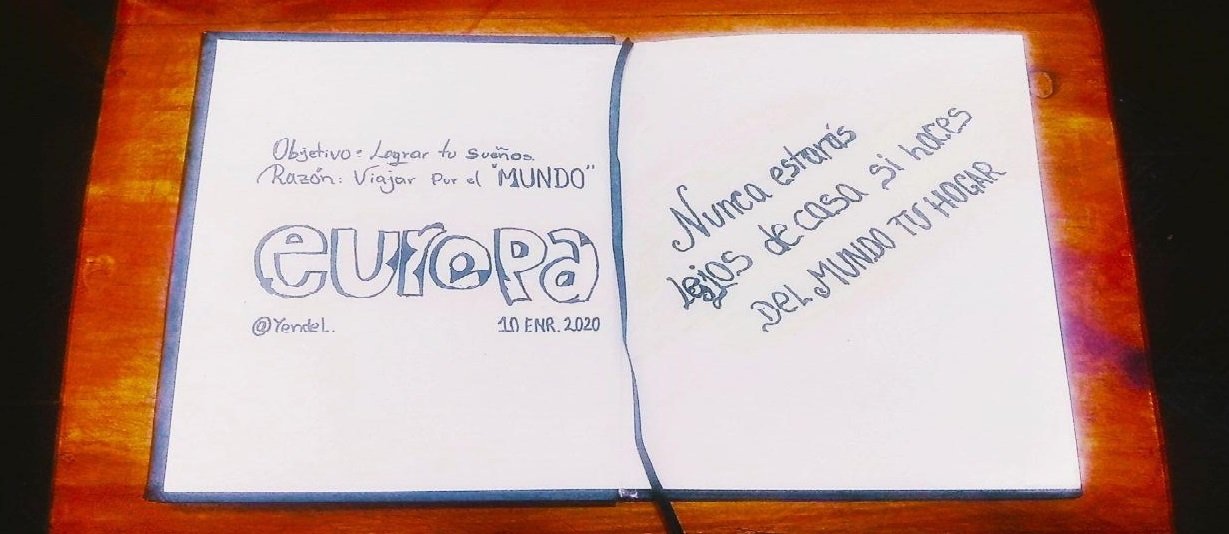 Objetivo: Lograr tu Sueños.
Razón: Viajar Por el "MUNDO"
europa
@Yendel..
10 ENR. 2020
Nunca estarás
lejos de casa si haces
DEL MUNDO TU HOGAR